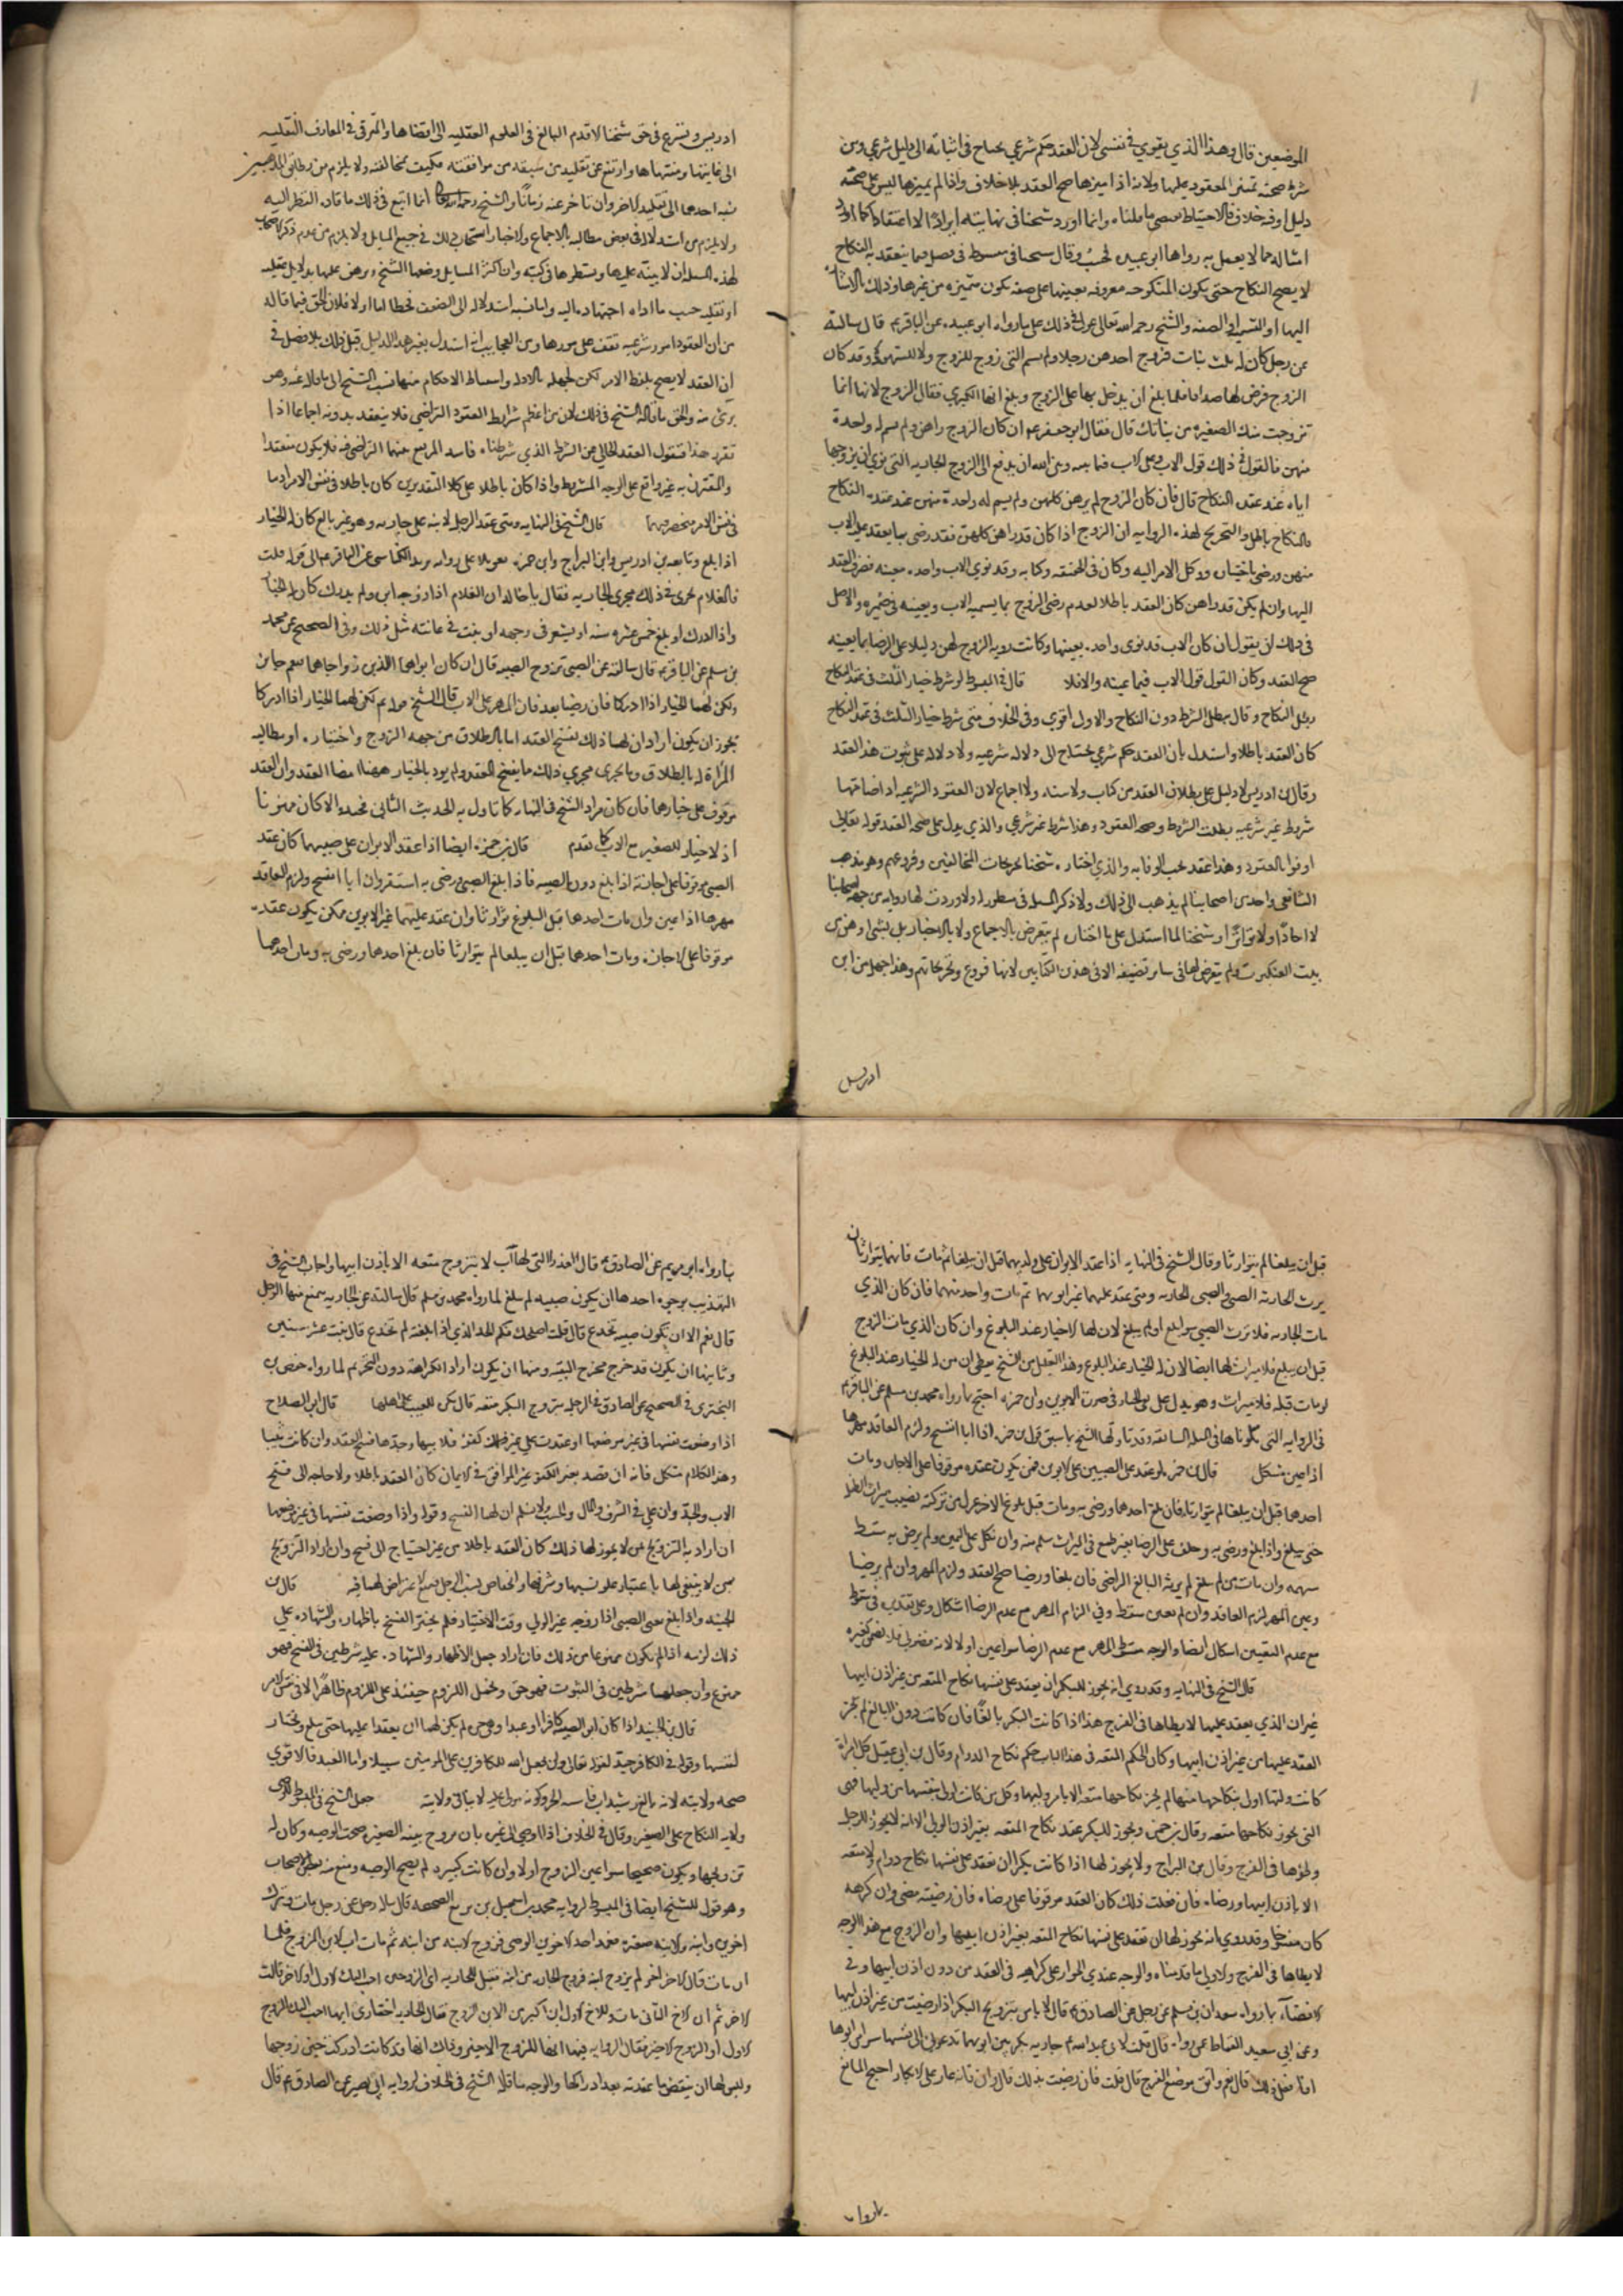 الموضعين قال وهذا الذي يقوي في نفسي لان العقد حكم شرعي يحتاج في اثباته الى دليل شرعي ومن
شرط صحته تمييز المعقود عليها ولانه اذا ميزها صح العقد بلا خلاف واذا لم يميزها ليس على صحته
دليل وفيه خلاف فالاحتياط يقتضي ما قلناه وانما اورد شيخنا في نهايته ايرادا لا اعتقادا كما اورد
امثاله مما لا يعمل به رواها ابو عبيده فحسب وقال شيخنا في مبسوطه في فصل فيما ينعقد به النكاح
لا يصح النكاح حتى يكون المنكوحه معروفه بعينها على صفه يكون متميزه من غيرها وذلك بالاشاره
اليها او التسميه او الصفه والشيخ رحمه الله تعالى عول في ذلك على ما رواه ابو عبيده عن الباقر ع قال سالته
عن رجل كان له ثلث بنات فزوج احدهن رجلا ولم يسم التي زوج للزوج ولا للشهود وقد كان
الزوج فرض لها صداقا فلما بلغ ان يدخل بها على الزوج وبلغ انها الكبرى فقال الزوج لابيها انما
تزوجت منك الصغيره من بناتك قال فقال ابو جعفر ع ان كان الزوج راهن ولم يسم له واحدة
منهن فالقول في ذلك قول الاب وعلى الاب فيما بينه وبين الله ان يدفع الى الزوج الجاريه التي نوى ان يزوجها
اياه عند عقد النكاح قال فان كان الزوج لم يرهن كلهن ولم يسم له واحدة منهن عند عقده النكاح
فالنكاح باطل والتحريج لهذه الروايه ان الزوج اذا كان قد راهن كلهن فقد رضي بما يعقد عليه الاب
منهن ورضي باختياره ووكل الامر اليه وقد نوى الاب واحده معينه فصرف العقد
اليها وان لم يكن قد راهن كان العقد باطلا لعدم رضى الزوج بما يسميه الاب ويعينه في ضميره والاصل
في ذلك ان يقول ان كان الاب قد نوى واحده بعينها وكانت رويه الزوج لهن دليلا على الرضا بما يعينه
صح العقد وكان القول قول الاب فيما عينه والا فلا قال في المبسوط لو شرط خيار الثلث في عقد النكاح
بطل النكاح وقال يبطل الشرط دون النكاح والاول اقوى وفي الخلاف متى شرط خيار الثلث في عقد النكاح
كان العقد باطلا واستدل بان العقد حكم شرعي يحتاج الى دلاله شرعيه ولا دلاله على ثبوت هذا العقد
وقال ابن ادريس لا دليل على بطلان العقد من كتاب ولا سنه ولا اجماع لان العقود الشرعيه اذا ضامتها
شروط غير شرعيه بطلت الشروط وصحت العقود وهذا شرط غير شرعي والذي يدل على صحه العقد قوله تعالى
اوفوا بالعقود وهذا عقد يجب الوفا به والذي اختاره شيخنا تخريجات المخالفين وفروعهم وهو مذهب
الشافعي واحد من اصحابنا لم يذهب الى ذلك ولا ذكر المسله في مسطور له ولا وردت لها روايه من جهه اصحابنا
لا احادا ولا تواترا وشيخنا لما استدل على ما اختاره لم يتعرض بالاجماع ولا بالاخبار بل بشئ اوهن من
بيت العنكبوت ولم يتعرض لها في ساير تصنيفه الا في هذين الكتابين لانها فروع وتخريجاتهم وهذا جهل من ابن
ادريس
ادريس وتسرع في حق شيخنا الاقدم البالغ في العلوم العقليه الى اقصاها والمترقي في المعارف النقليه
الى غايتها ومنتهاها وارتفع عن تقليد من سبقه من موافقيه فكيف بمخالفيه ولا يلزم من تطابق المذهبين
نسبه احدهما الى تقليد الاخر وان تاخر عنه زمانا والشيخ رحمه الله انما اتبع في ذلك ما قاده النظر اليه
ولا يلزم من استدلاله في بعض مطالبه بالاجماع والاخبار استحباب ذلك في جميع المسايل ولا يلزم من عدم ذكر اصحابنا
لهذه المسله ان لا ينبه عليها ويسطرها في كتبه وان اكثر المسايل وضعها الشيخ وبرهن عليها بدلايل عقليه
او نقليه حسب ما اداه اجتهاده اليه واما نسبه استدلاله الى الضعف فخطا اما اولا فلان الحق فيما قاله
من ان العقود امور شرعيه تقف على موردها ومن العجايب انه استدل بغير هذا الدليل قبل ذلك بلا فصل في
ان العقد لا يصح بلفظ الامر لكن لجهله بالادله واستنباط الاحكام منها نسب الشيخ الى ما قاله عنه وهو
بريئ منه والحق ما قاله الشيخ في ذلك لان من اعظم شرايط العقود التراضي فلا ينعقد بدونه اجماعا اذا
تقرر هذا فنقول العقد الخالي عن الشرط الذي شرطناه فاسد لم يقع منهما التراضي فيه فلا يكون منعقدا
والمقترن به غير واقع على الوجه المشروط واذا كان باطلا على كلا التقديرين كان باطلا في نفس الامر اذ ما
في نفس الامر منحصر فيهما قال الشيخ في النهايه ومتى عقد الرجل لابنه على جاريه وهو غير بالغ كان له الخيار
اذا بلغ وتابعه بن ادريس وابن البراج وابن حمزه تعويلا على روايه بريد الكناسي عن الباقر ع الى قوله قلت
فالغلام يجري في ذلك مجرى الجاريه فقال يا ابا خالد ان الغلام اذا زوجه ابوه ولم يدرك كان له الخيار
واذا ادرك او بلغ خمس عشره سنه او يشعر في وجهه او ينبت في عانته مثل ذلك وفي الصحيح عن محمد
بن مسلم عن الباقر ع قال سالته عن الصبي تزوج الصبيه قال ان كان ابواهما اللذين زوجاهما فنعم جايز
ولكن لهما الخيار اذا ادركا فان رضيا بعد فان المهر على الاب قال الشيخ قوله ع لكن لهما الخيار اذا ادركا
يجوز ان يكون اراد ان لهما ذلك بفسخ العقد اما بالطلاق من جهه الزوج واختياره او مطالبه
المراة له بالطلاق وما يجرى مجرى ذلك مما يفسخ العقد ولم يرد بالخيار ههنا امضا العقد وان العقد
موقوف على خيارهما فان كان مراد الشيخ في النهايه كما تاول به الحديث الثاني فجيد والا كان ممنوعا
اذ لا خيار للصغير مع الاب كما تقدم قال بن حمزه ايضا اذا عقد الابوان على صبييهما كان عقد
الصبي موقوفا على اجازته اذا بلغ دون الصبيه فاذا بلغ الصبي ورضى به استقر وان ابا انفسخ ولزم العاقد
مهرها اذا عين وان مات احدهما قبل البلوغ توارثا وان عقد عليهما غير الابوين فكن يكون عقده
موقوفا على الاجازه ومات احدهما قبل ان يبلغا لم يتوارثا فان بلغ احدهما ورضى به ومات احدهما
قبل ان يبلغا لم يتوارثا وقال الشيخ في النهايه اذا عقد الابوان على ولديهما قبل ان يبلغا ثم مات فانهما يتوارثان
يرث الجاريه الصبي والصبي الجاريه ومتى عقد عليهما غير ابويهما ثم مات واحد منهما فان كان الذي
مات الجاريه فلا يرث الصبي سوا بلغ او لم يبلغ لان لها الاخيار عند البلوغ وان كان الذي مات الزوج
قبل ان يبلغ فلا ميراث لها ايضا لان له الخيار عند البلوغ وهذا التعليل من الشيخ يعطي ان من له الخيار عند البلوغ
لو مات قبله فلا ميراث وهو يدل على نفي الخيار في صورة الابوين وابن حمزه احتج بما رواه محمد بن مسلم عن الباقر ع
في الروايه التي تلوناها في المسله السابقه وقد تاولها الشيخ بما سبق قول بن حمزه اذا ابا انفسخ ولزم العاقد مهرها
اذا عين مشكل قال بن حمزه لو عقد على الصبيين غير الابوين فمن يكون عقده موقوفا على الاجازه ومات
احدهما قبل ان يبلغا لم يتوارثا فان بلغ احدهما ورضى به ومات قبل بلوغ الاخر عزل من تركته نصيب ميراث الطفل
حتى يبلغ واذا بلغ ورضى به وحلف على الرضا بغير طمع في الميراث سلم منه وان نكل عن اليمين ولم يرض به سقط
سهمه وان مات من لم يبلغ لم يرثه البالغ الراضي فان بلغا ورضيا صح العقد ولزم المهر وان لم يرضيا
وعين المهر لزم العاقد وان لم يعين سقط وفي الزام المهر مع عدم الرضا اشكال وعلى تقديره في سقوطه
مع عدم التعيين اشكال ايضا والوجه سقوط المهر مع عدم الرضا سوا عين او لا لانه فضولي فلا يقضي كغيره
قال الشيخ في النهايه وقد روي انه يجوز للبكر ان يعقد على نفسها نكاح المتعه من غير اذن ابيها
غير ان الذي يعقد عليها لا يطاها في الفرج هذا اذا كانت البكر بالغا فان كانت دون البالغ لم يجز
العقد عليها من غير اذن ابيها وكان الحكم المتعه في هذا الباب حكم نكاح الدوام وقال بن ابي عقيل كل امراة
كانت وليها اولى بنكاحها منها لم يجز نكاحها متعه الا بامر وليها وكل من كانت اولى بنفسها من وليها فهي
التي يجوز نكاحها متعه وقال بن حمزه ويجوز للبكر عقد نكاح المتعه بغير اذن الولي الا انه لا يجوز للرجل
وطؤها في الفرج وقال بن البراج ولا يجوز لها اذا كانت بكرا ان تعقد على نفسها نكاح دوام ولا متعه
الا باذن ابيها ورضاه فان فعلت ذلك كان العقد موقوفا على رضاه فان رضيه مضى وان كرهه
كان منفسخا وقد روي انه يجوز لها ان تعقد على نفسها نكاح المتعه بغير اذن ابيها وان الزوج مع هذا الوجه
لا يطاها في الفرج والاولى ما قدمناه والوجه عندي الجواز على كراهيه في العقد من دون اذن ابيها وفي
الافضاء لما رواه سعدان بن مسلم عن رجل عن الصادق ع قال لا باس بتزويج البكر اذا رضيت من غير اذن ابيها
وعن ابي سعيد القماط عمن رواه قال قلت لابي عبد الله ع جاريه بكر بين ابويها تدعوني الى نفسها سرا من ابويها
افافعل ذلك قال نعم واتق موضع الفرج قال قلت فان رضيت بذلك قال وان فانه عار على الابكار احتج المانع
بما رواه
بما رواه ابو مريم عن الصادق ع قال العذرا التي لها اب لا يتزوج متعه الا باذن ابيها واجاب الشيخ في
التهذيب بوجوه احدها ان يكون صبيه لم تبلغ لما رواه محمد بن مسلم قال سالته عن الجاريه يتمتع منها الرجل
قال نعم الا ان تكون صبيه تخدع قال قلت اصلحك الله فكم الحد الذي اذا بلغته لم تخدع قال بنت عشر سنين
وثانيها ان يكون قد خرج مخرج التقيه ومنها ان يكون اراد الكراهه دون التحريم لما رواه حفص بن
البختري في الصحيح عن الصادق ع في الرجل يتزوج البكر متعه قال يكره للعيب على اهلها قال ابو الصلاح
اذا وضعت نفسها في غير موضعها او عقدت على غير كفو فلابيها وجدها فسخ العقد وان كانت ثيبا
وهذا الكلام مشكل فانه ان قصد بغير الكفو غير الموافق في الايمان كان العقد باطلا ولا حاجه الى فسخ
الاب والجد وان على في الشرف والمال والحسب فلا نسلم ان لها الفسخ وقوله واذا وضعت نفسها في غير موضعها
ان اراد به التزويج بمن لا يجوز لها ذلك كان العقد باطلا من غير احتياج الى فسخ وان اراد التزويج
بمن لا ينبغي لها باعتبار علو نسبها وشرفها وانخفاض نسب الرجل منع الاعتراض لهما فيه قال بن
الجنيد واذا بلغ الصبي اذا زوجه غير الولي وقت الاختيار فلم يختر الفسخ باظهاره والشهاده على
ذلك لزمه اذا لم يكون ممنوعا من ذلك فان اراد جعل الاظهار والشهاده عليه شرطين في الفسخ فهو
ممنوع وان جعلهما شرطين في الثبوت فهو حق ويحمل اللزوم حينئذ على اللزوم ظاهرا لا في نفس الامر
قال بن الجنيد اذا كان ابو الصبيه كافرا او عبدا وهي حره لم يكن لهما ان يعقدا عليها حتى تبلغ وتختار
لنفسها وقوله في الكافر جيد لقوله تعالى ولن يجعل الله للكافرين على المومنين سبيلا واما العبد فالاقوى
صحه ولايته لانه بالغ رشيد اب فاشبه الحر وكونه مولى عليه لا ينافي ولايته جعل الشيخ في المبسوط للوصي
ولايه النكاح على الصغير وقال في الخلاف اذا اوصى الى غيره بان يزوج بنته الصغيره صحت الوصيه وكان له
تزويجها ويكون صحيحا سوا عين الزوج او لا وان كانت كبيره لم يصح الوصيه ومنع منه بعض الاصحاب
وهو قول للشيخ ايضا في المبسوط لروايه محمد بن اسمعيل بن بزيع الصحيحه قال ساله رجل عن رجل مات وترك
اخوين وابنه والابنه صغيره فعمد احد الاخوين الوصي فزوج الابنه من ابنه ثم مات اب الابن المزوج فلما
ان مات قال الاخر اخي لم يزوج ابنه فزوج الجاريه من ابنه فقيل للجاريه اي الزوجين احب اليك الاول او الاخر قالت
الاخر ثم ان الاخ الثاني مات وللاخ الاول ابن اكبر من الابن المزوج فقال للجاريه اختاري ايهما احب اليك الزوج
الاول او الزوج الاخير فقال الروايه فيها انها للزوج الاخير وذلك انها قد كانت ادركت حين زوجها
وليس لها ان ينقض ما عقدته بعد ادراكها والوجه ما قاله الشيخ في الخلاف لروايه ابي بصير عن الصادق ع قال